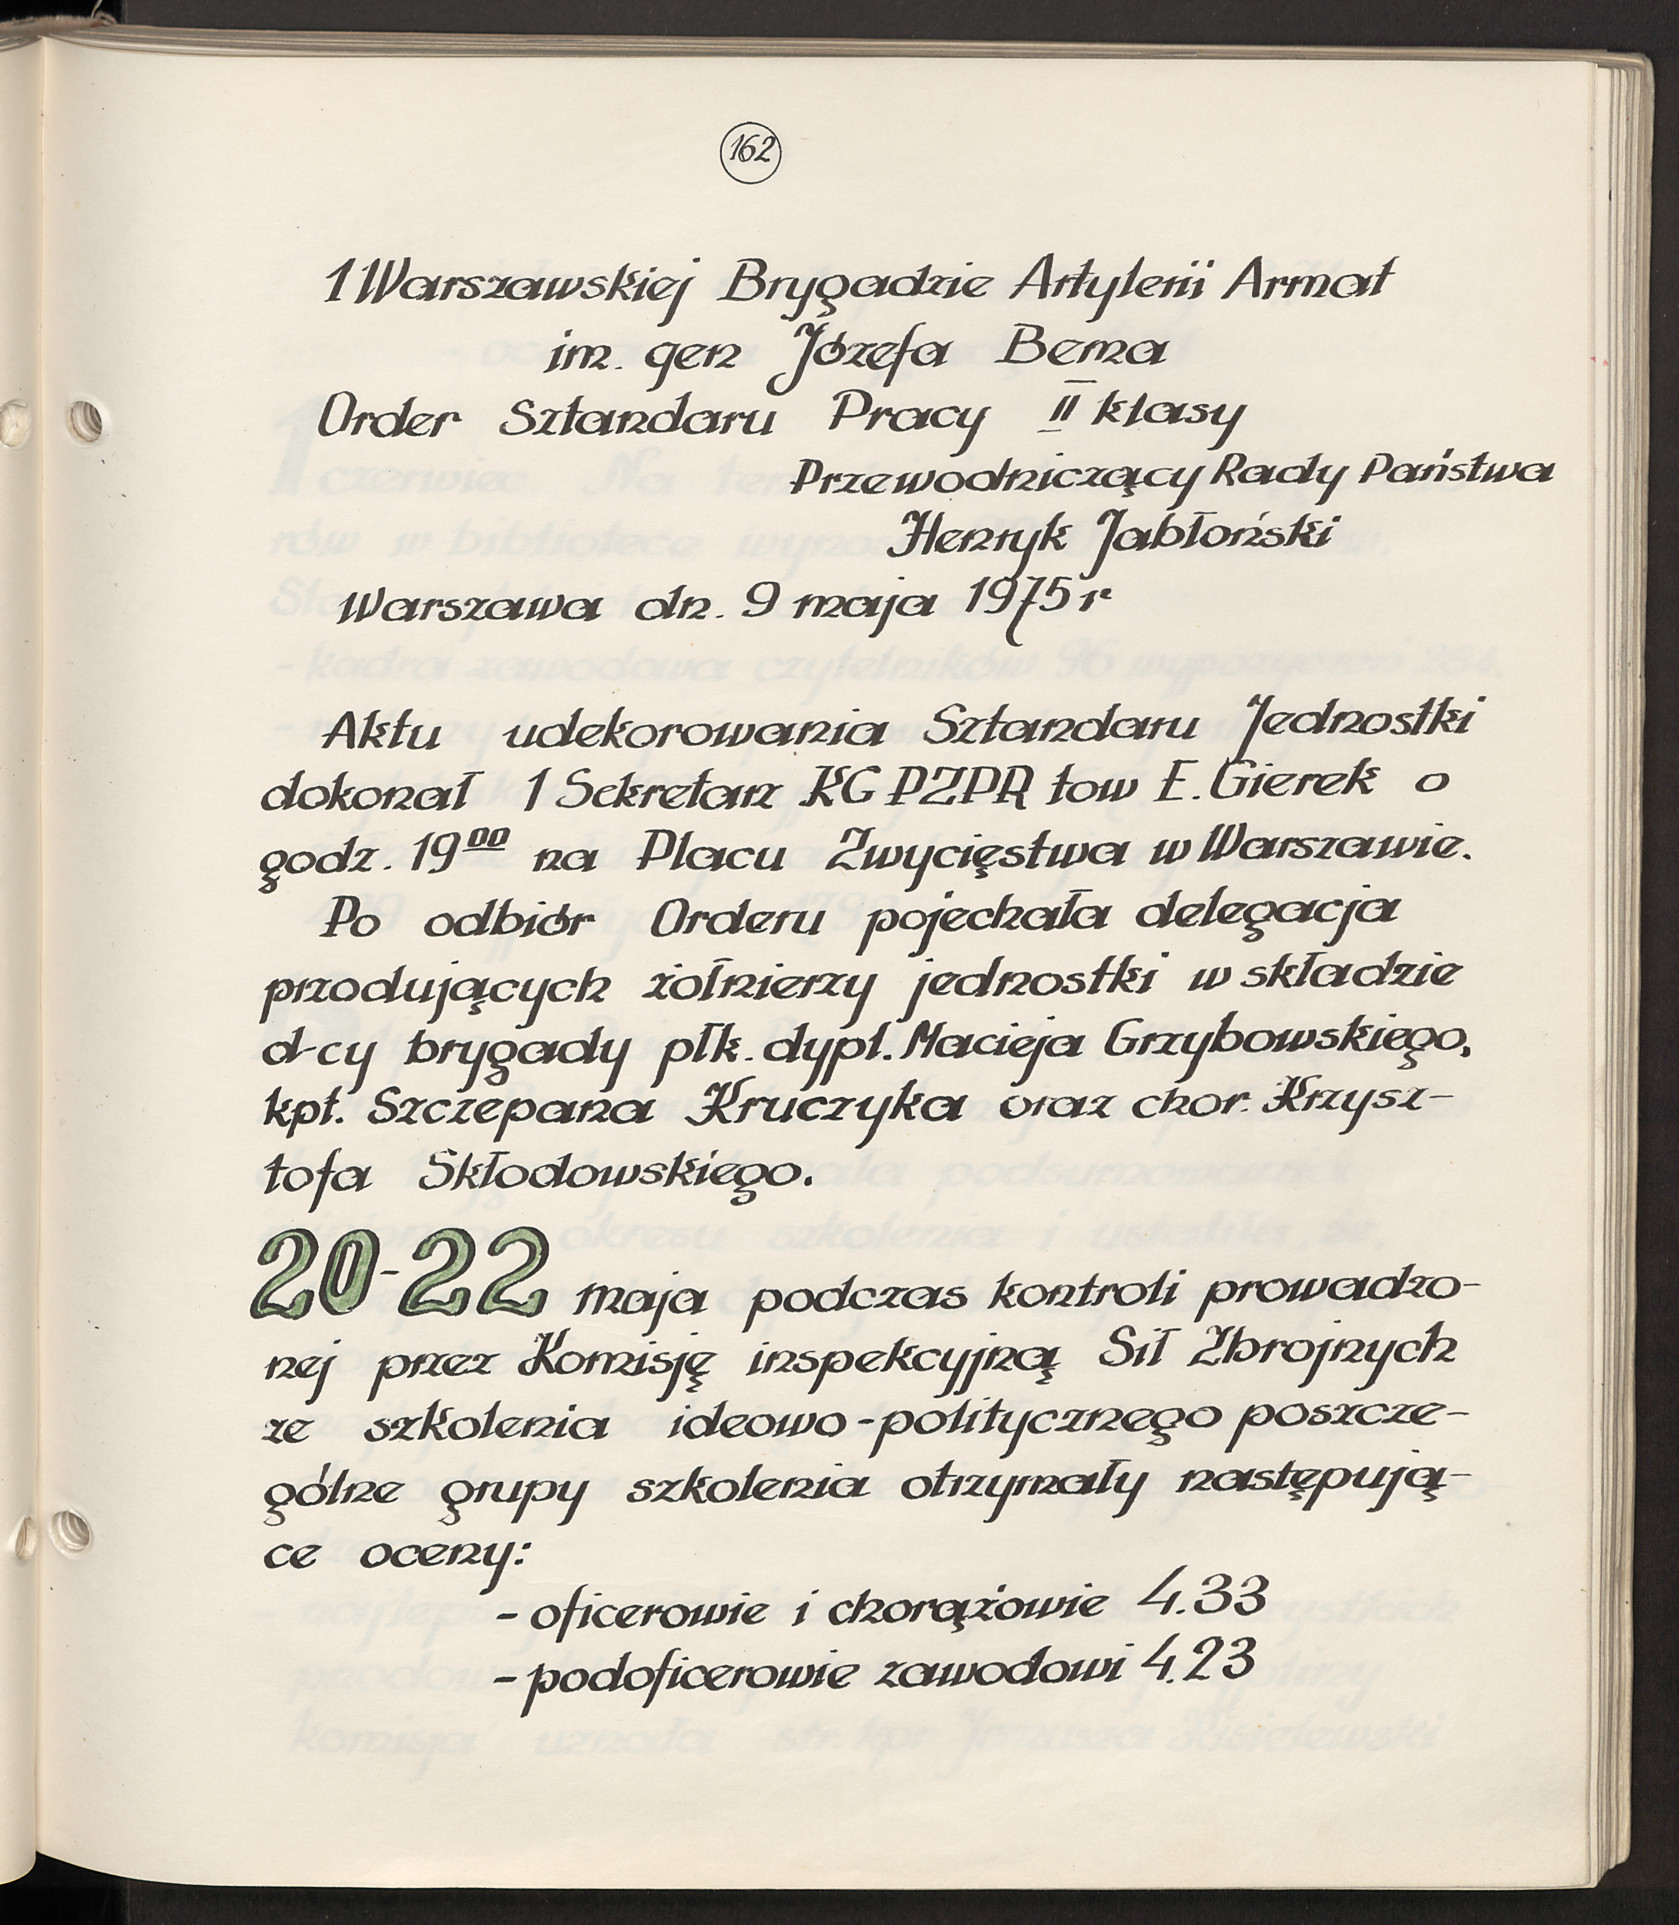 162
1 Warszawskiej Brygadzie Artylerii Armat
im. gen Józefa Bema
Order Sztandaru Pracy II klasy
Przewodniczący Rady Państwa
Henryk Jabłoński
Warszawa dn. 9 maja 1975 r
Aktu udekorowania Sztandaru Jednostki
dokonał 1 Sekretarz KC PZPR tow E. Gierek o
godz. 19⁰⁰ na Placu Zwycięstwa w Warszawie.
Po odbiór Orderu pojechała delegacja
przodujących żołnierzy jednostki w składzie
d-cy brygady płk. dypl. Macieja Grzybowskiego,
kpt. Szczepana Kruczyka oraz chor. Krzysz-
tofa Skłodowskiego.
20-22 maja podczas kontroli prowadzo-
nej przez Komisję inspekcyjną Sił Zbrojnych
ze szkolenia ideowo-politycznego poszcze-
gólne grupy szkolenia otrzymały następują-
ce oceny:
- oficerowie i chorążowie 4.33
- podoficerowie zawodowi 4.23